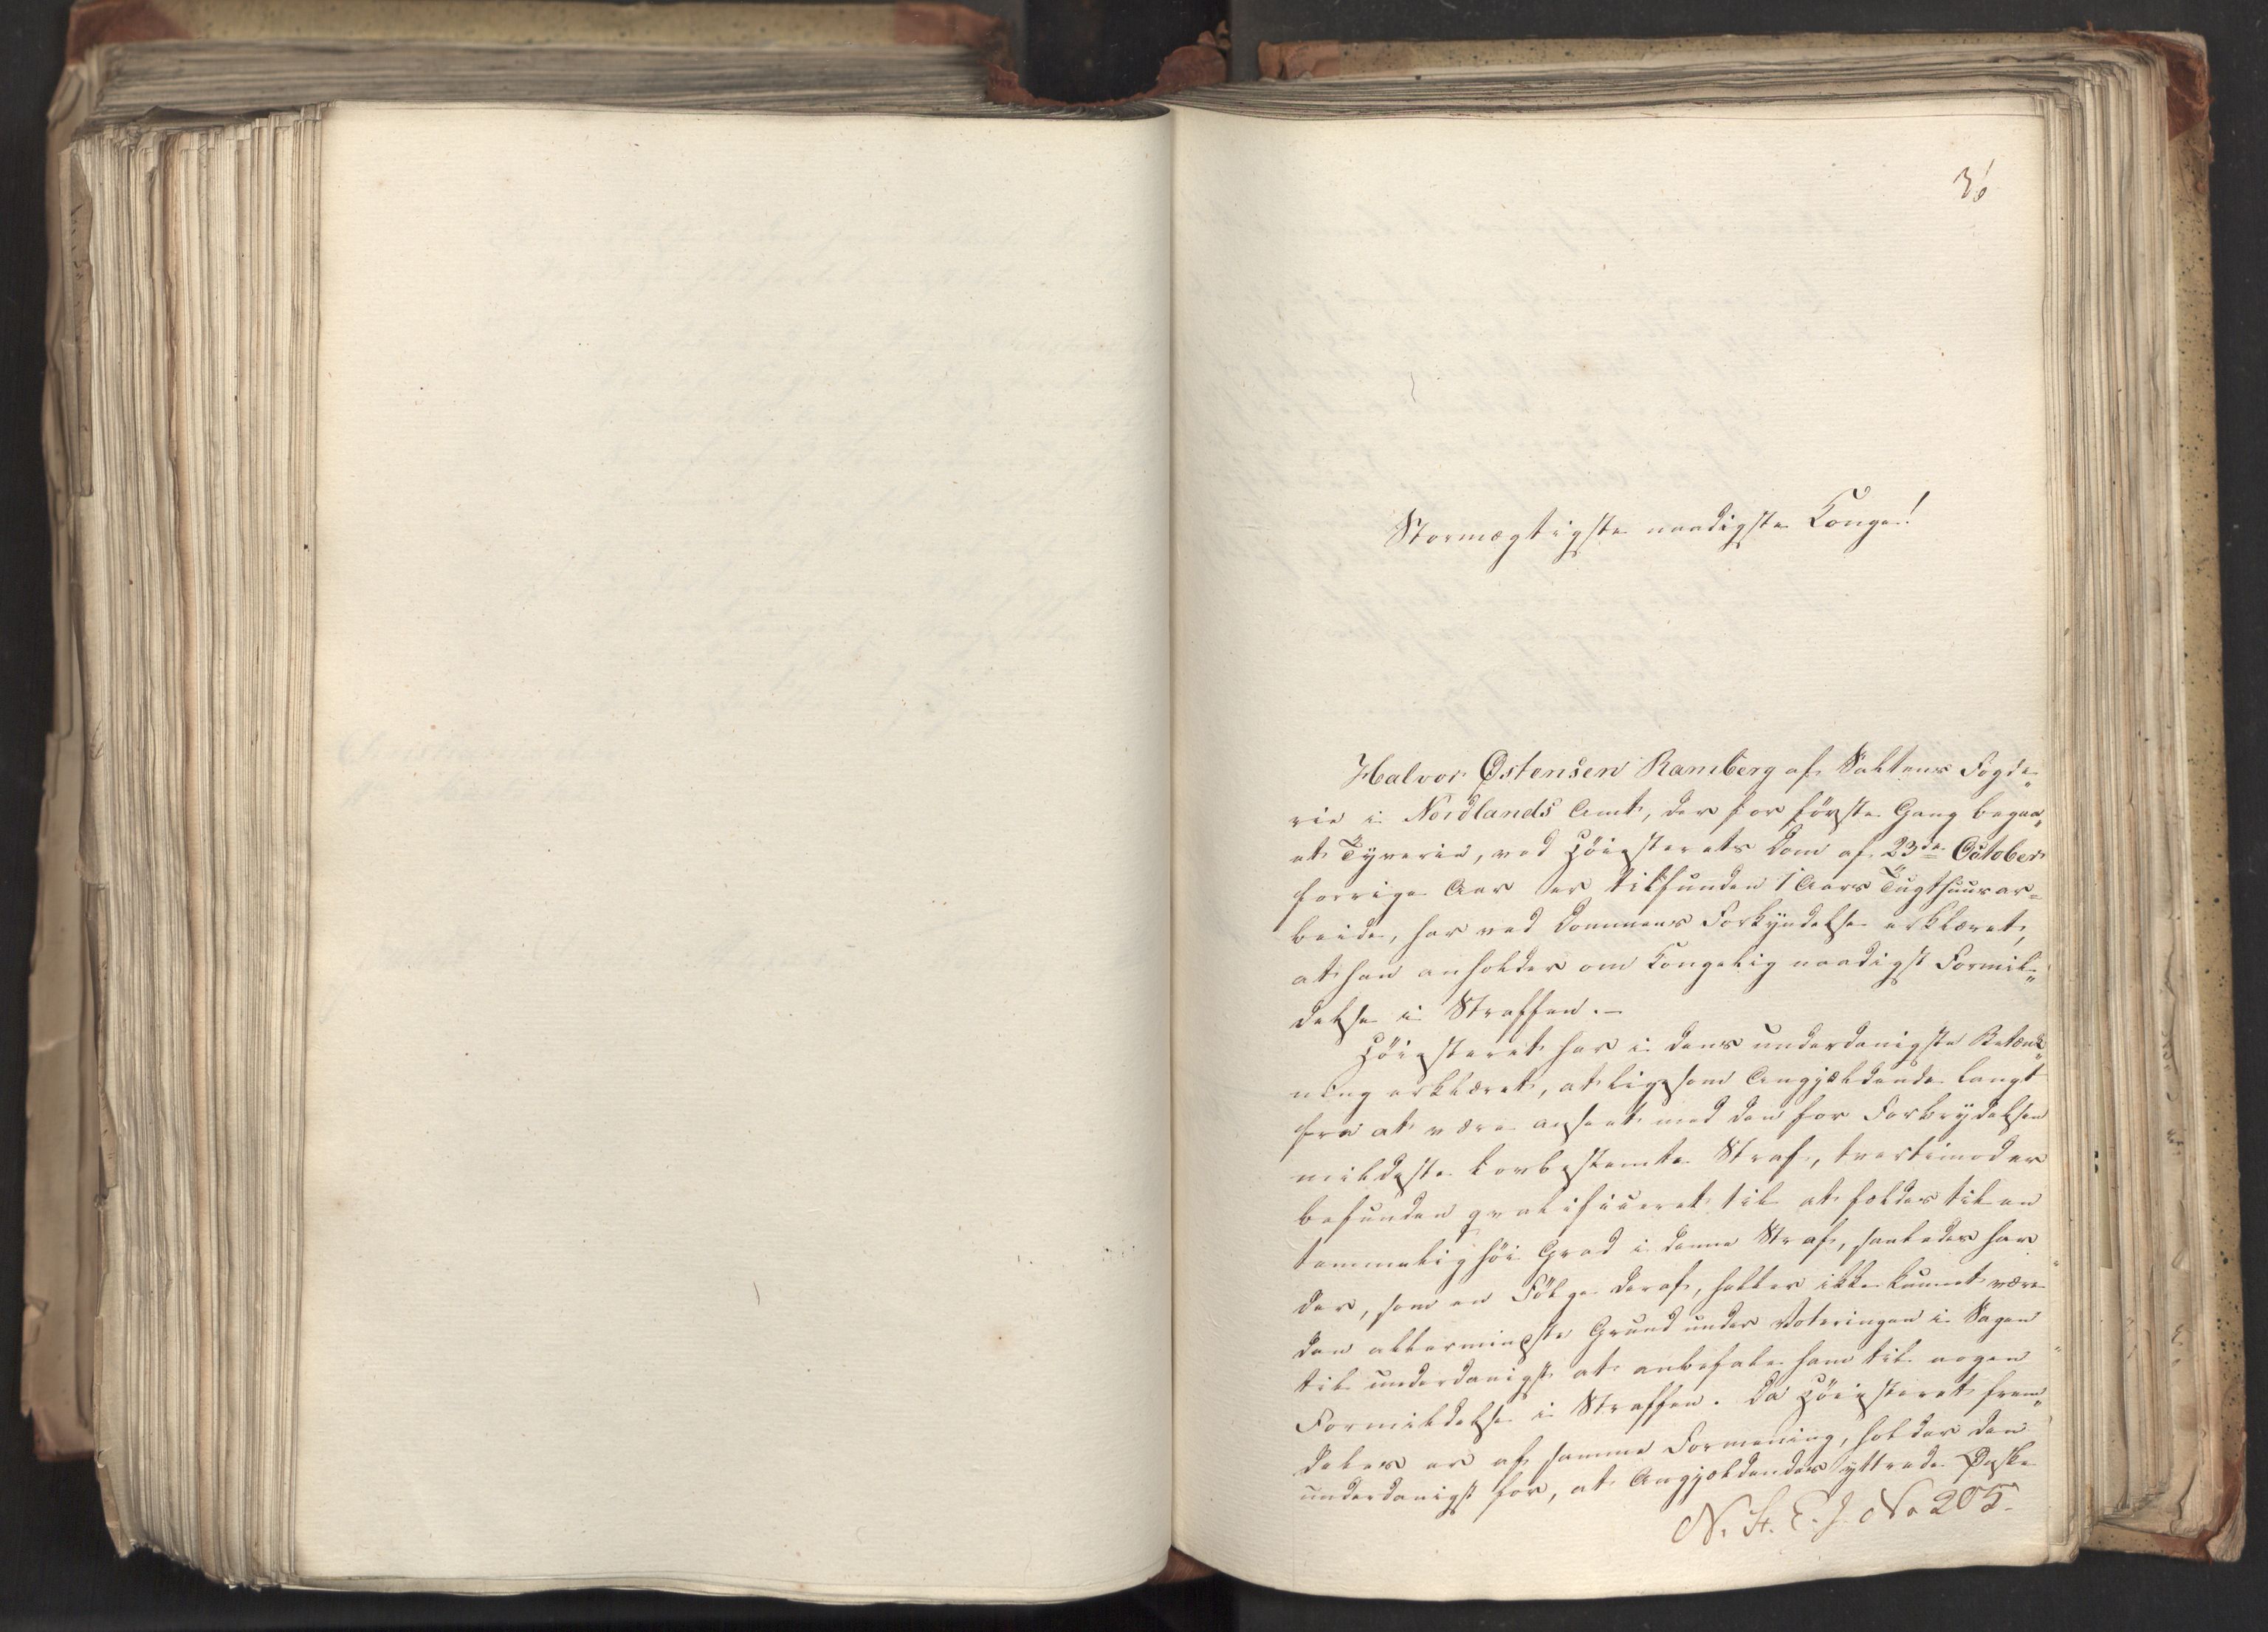 36
Stormægtigste naadigste Konge!
Halvor Østensen Ramberg af Saltens Fogde„
rie i Nordlands Amt, der for første Gang begaa„
et Tyverie, ved Høiesterets Dom af 23de October
forrige Aar er tilfunden 1 Aars Tugthuusar=
beide, har ved Dommens Forkyndelse erklæret,
at han anholder om Kongelig naadigst Formil„
delse i Straffen.—
Høiesteret har i dens underdanigste Betænk„
ning erklæret, at ligesom Angjældende langt
fra at være anseet med den for Forbrydelsen
mildeste lovbestemte Straf, tvertimod er
befunden qvalificeret til at fældes til en
temmelig høi Grad i denne Straf, saaledes har
der, som en Følge deraf, heller ikke kunnet være
den allermindste Grund under Voteringen i Sagen
til underdanigst at anbefale ham til nogen
Formildelse i Straffen. Da Høiesteret frem„
deles er af samme Formening, holder den
underdanigst for, at Angjældendes yttrede Ønske
N. St. E. J. No 205.